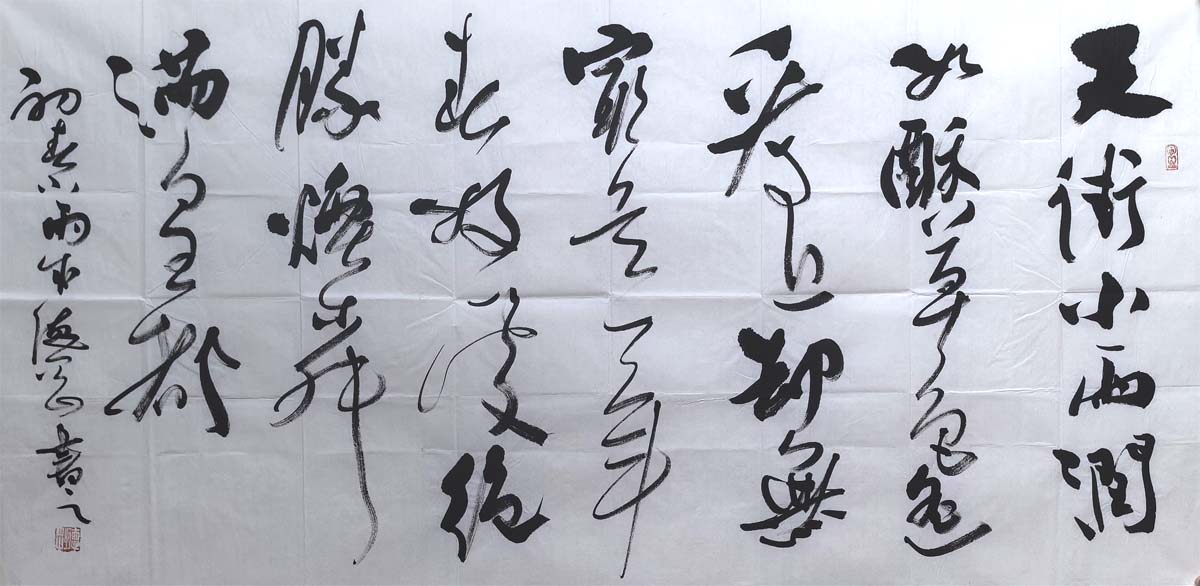 天街小雨潤
如酥草色遥
看近却無
最是一年
春好處絶
勝煙柳
滿皇都
初春小雨 書之